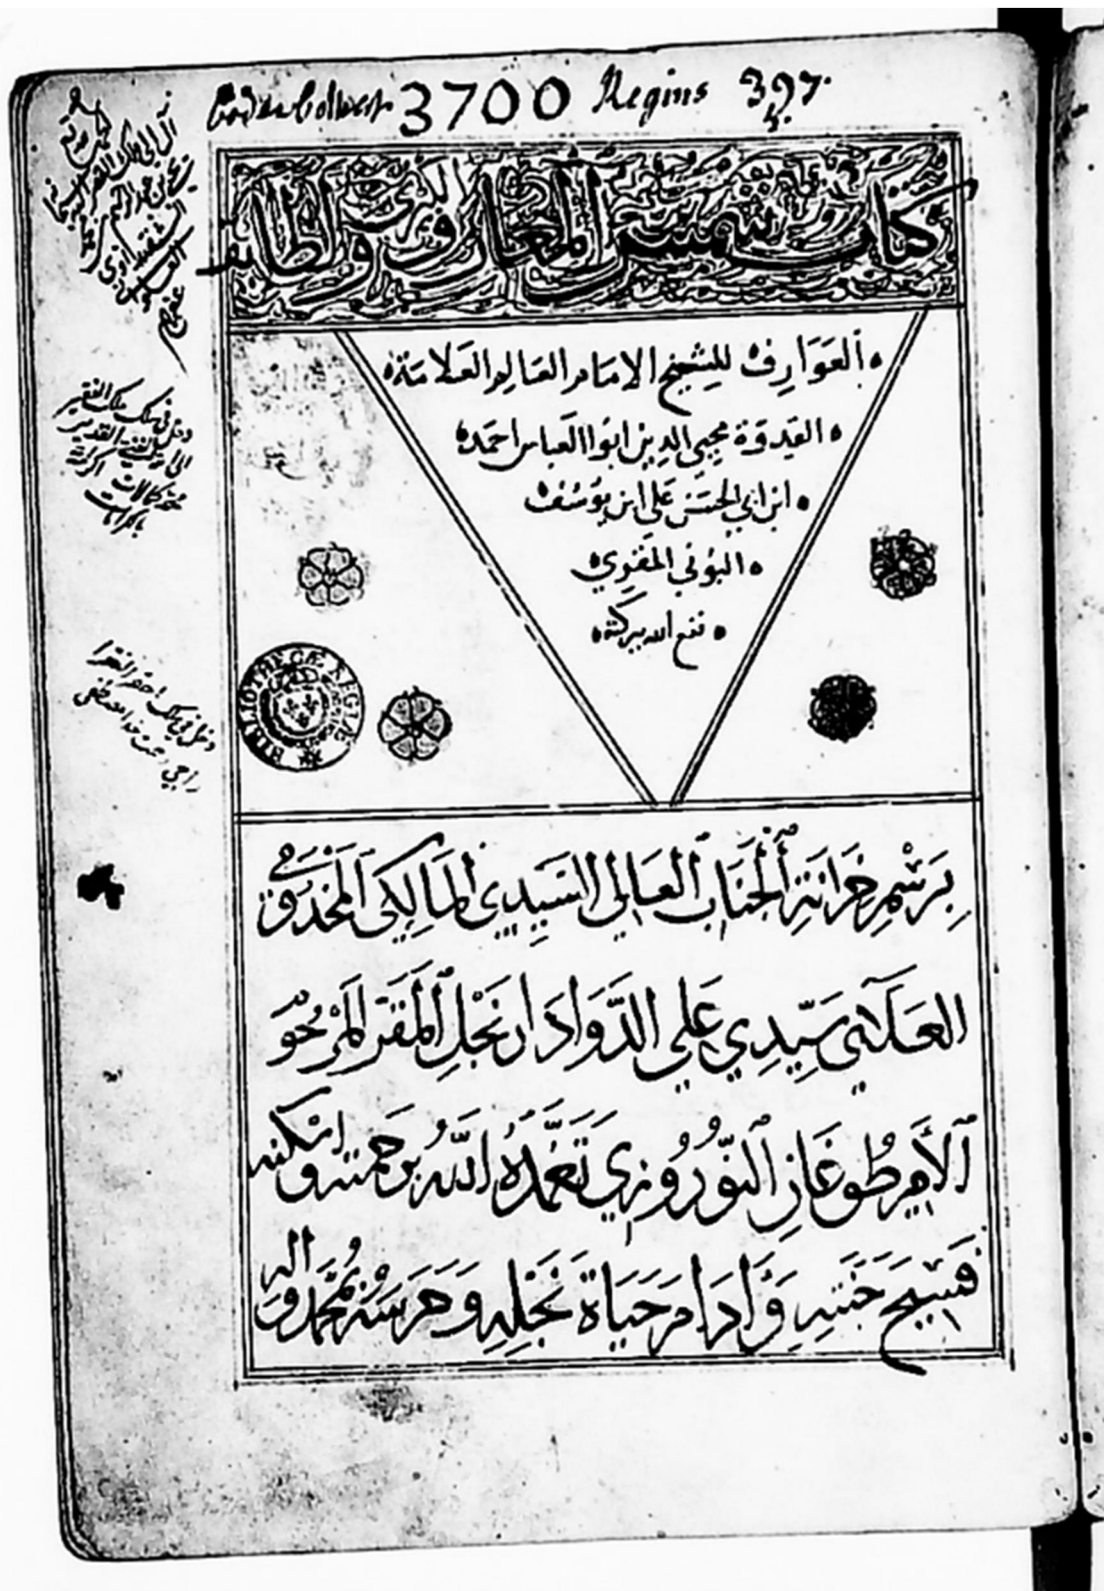 Codex Colbert 3700 Regius 397.
كتاب شمس المعارف ولطائف
العوارف للشيخ الامام العالم العلامة
القدوة محيي الدين ابوا العباس احمد
ابن ابي الحسن علي ابن يوسف
البوني المقري
نفع الله ببركته
BIBLIOTHECÆ REGIÆ
برسم خزانة الجناب العالي السيدي المالكي المخدومي
العلائي سيدي علي الدوادار نجل المقر المرحوم
الأمير طوغان النوروزي تغمده الله برحمته واسكنه
فسيح جنته وأدام حياة نجله وحرسه بمحمد واله
دخل في ملك
الفقير
دخل في ملك احقر الفقرا